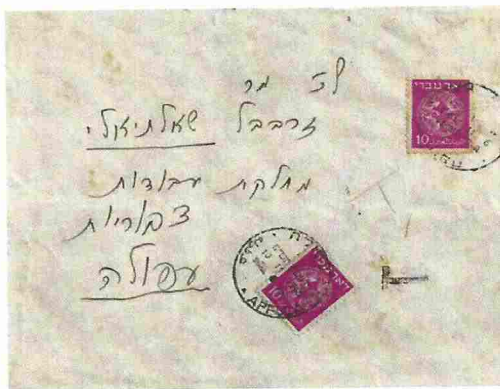 לכ' מר
זרבבל שאלתיאלי
מחלקת עבודות
צבוריות
עפולה
דאר עברי
10
דאר עברי
10
T